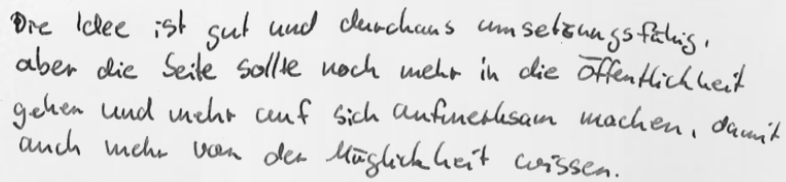 Die Idee ist gut und durchaus umsetzungsfähig,
aber die Seite sollte noch mehr in die Öffentlichkeit
gehen und mehr auf sich aufmerksam machen, damit
auch mehr von der Möglichkeit wissen.